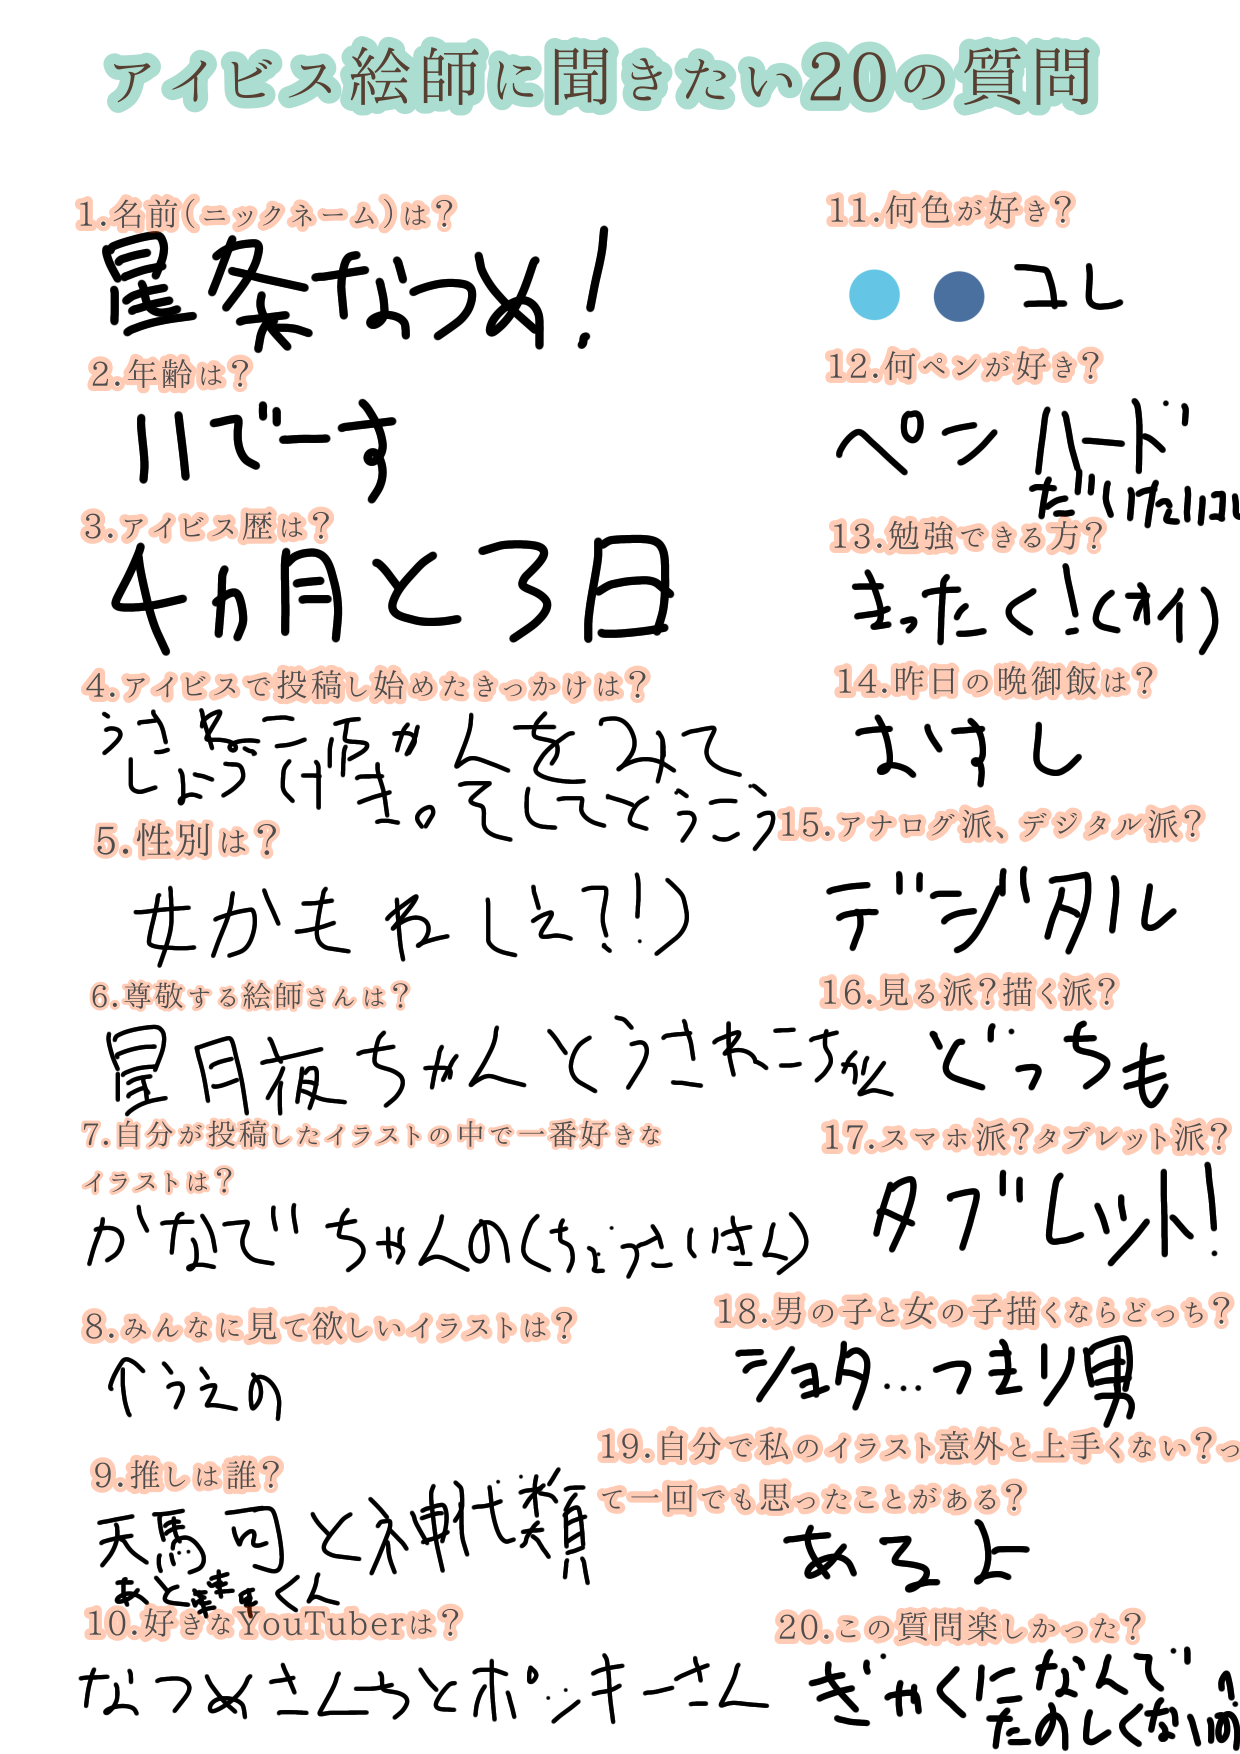 アイビス絵師に聞きたい20の質問
1.名前(ニックネーム)は?
星条なつめ!
2.年齢は?
11でーす
3.アイビス歴は?
4ヵ月と3日
4.アイビスで投稿し始めたきっかけは?
うさねこ
んをみて、
しょうげき。そしてとうこう
5.性別は?
女かもねしえ?!)
6.尊敬する絵師さんは?
星月夜ちゃんとうさねこちゃん
7.自分が投稿したイラストの中で一番好きな
イラストは?
かなでちゃんの(ちどうさいさん)
8.みんなに見て欲しいイラストは?
↑うえの
9.推しは誰?
天馬司と神代類
あと くん
10.好きなYouTuberは?
なつめさんちとポッキーさん
11.何色が好き?
コレ
12.何ペンが好き?
ペン ハード
だいたいコレ
13.勉強できる方?
まったく!(オイ)
14.昨日の晩御飯は?
おすし
15.アナログ派、デジタル派?
デジタル
16.見る派?描く派?
どっちも
17.スマホ派?タブレット派?
タブレット!
18.男の子と女の子描くならどっち?
ショタ…つまり男
19.自分で私のイラスト意外と上手くない?っ
て一回でも思ったことがある?
あるよ
20.この質問楽しかった?
ぎゃくになんで
たのしくないの